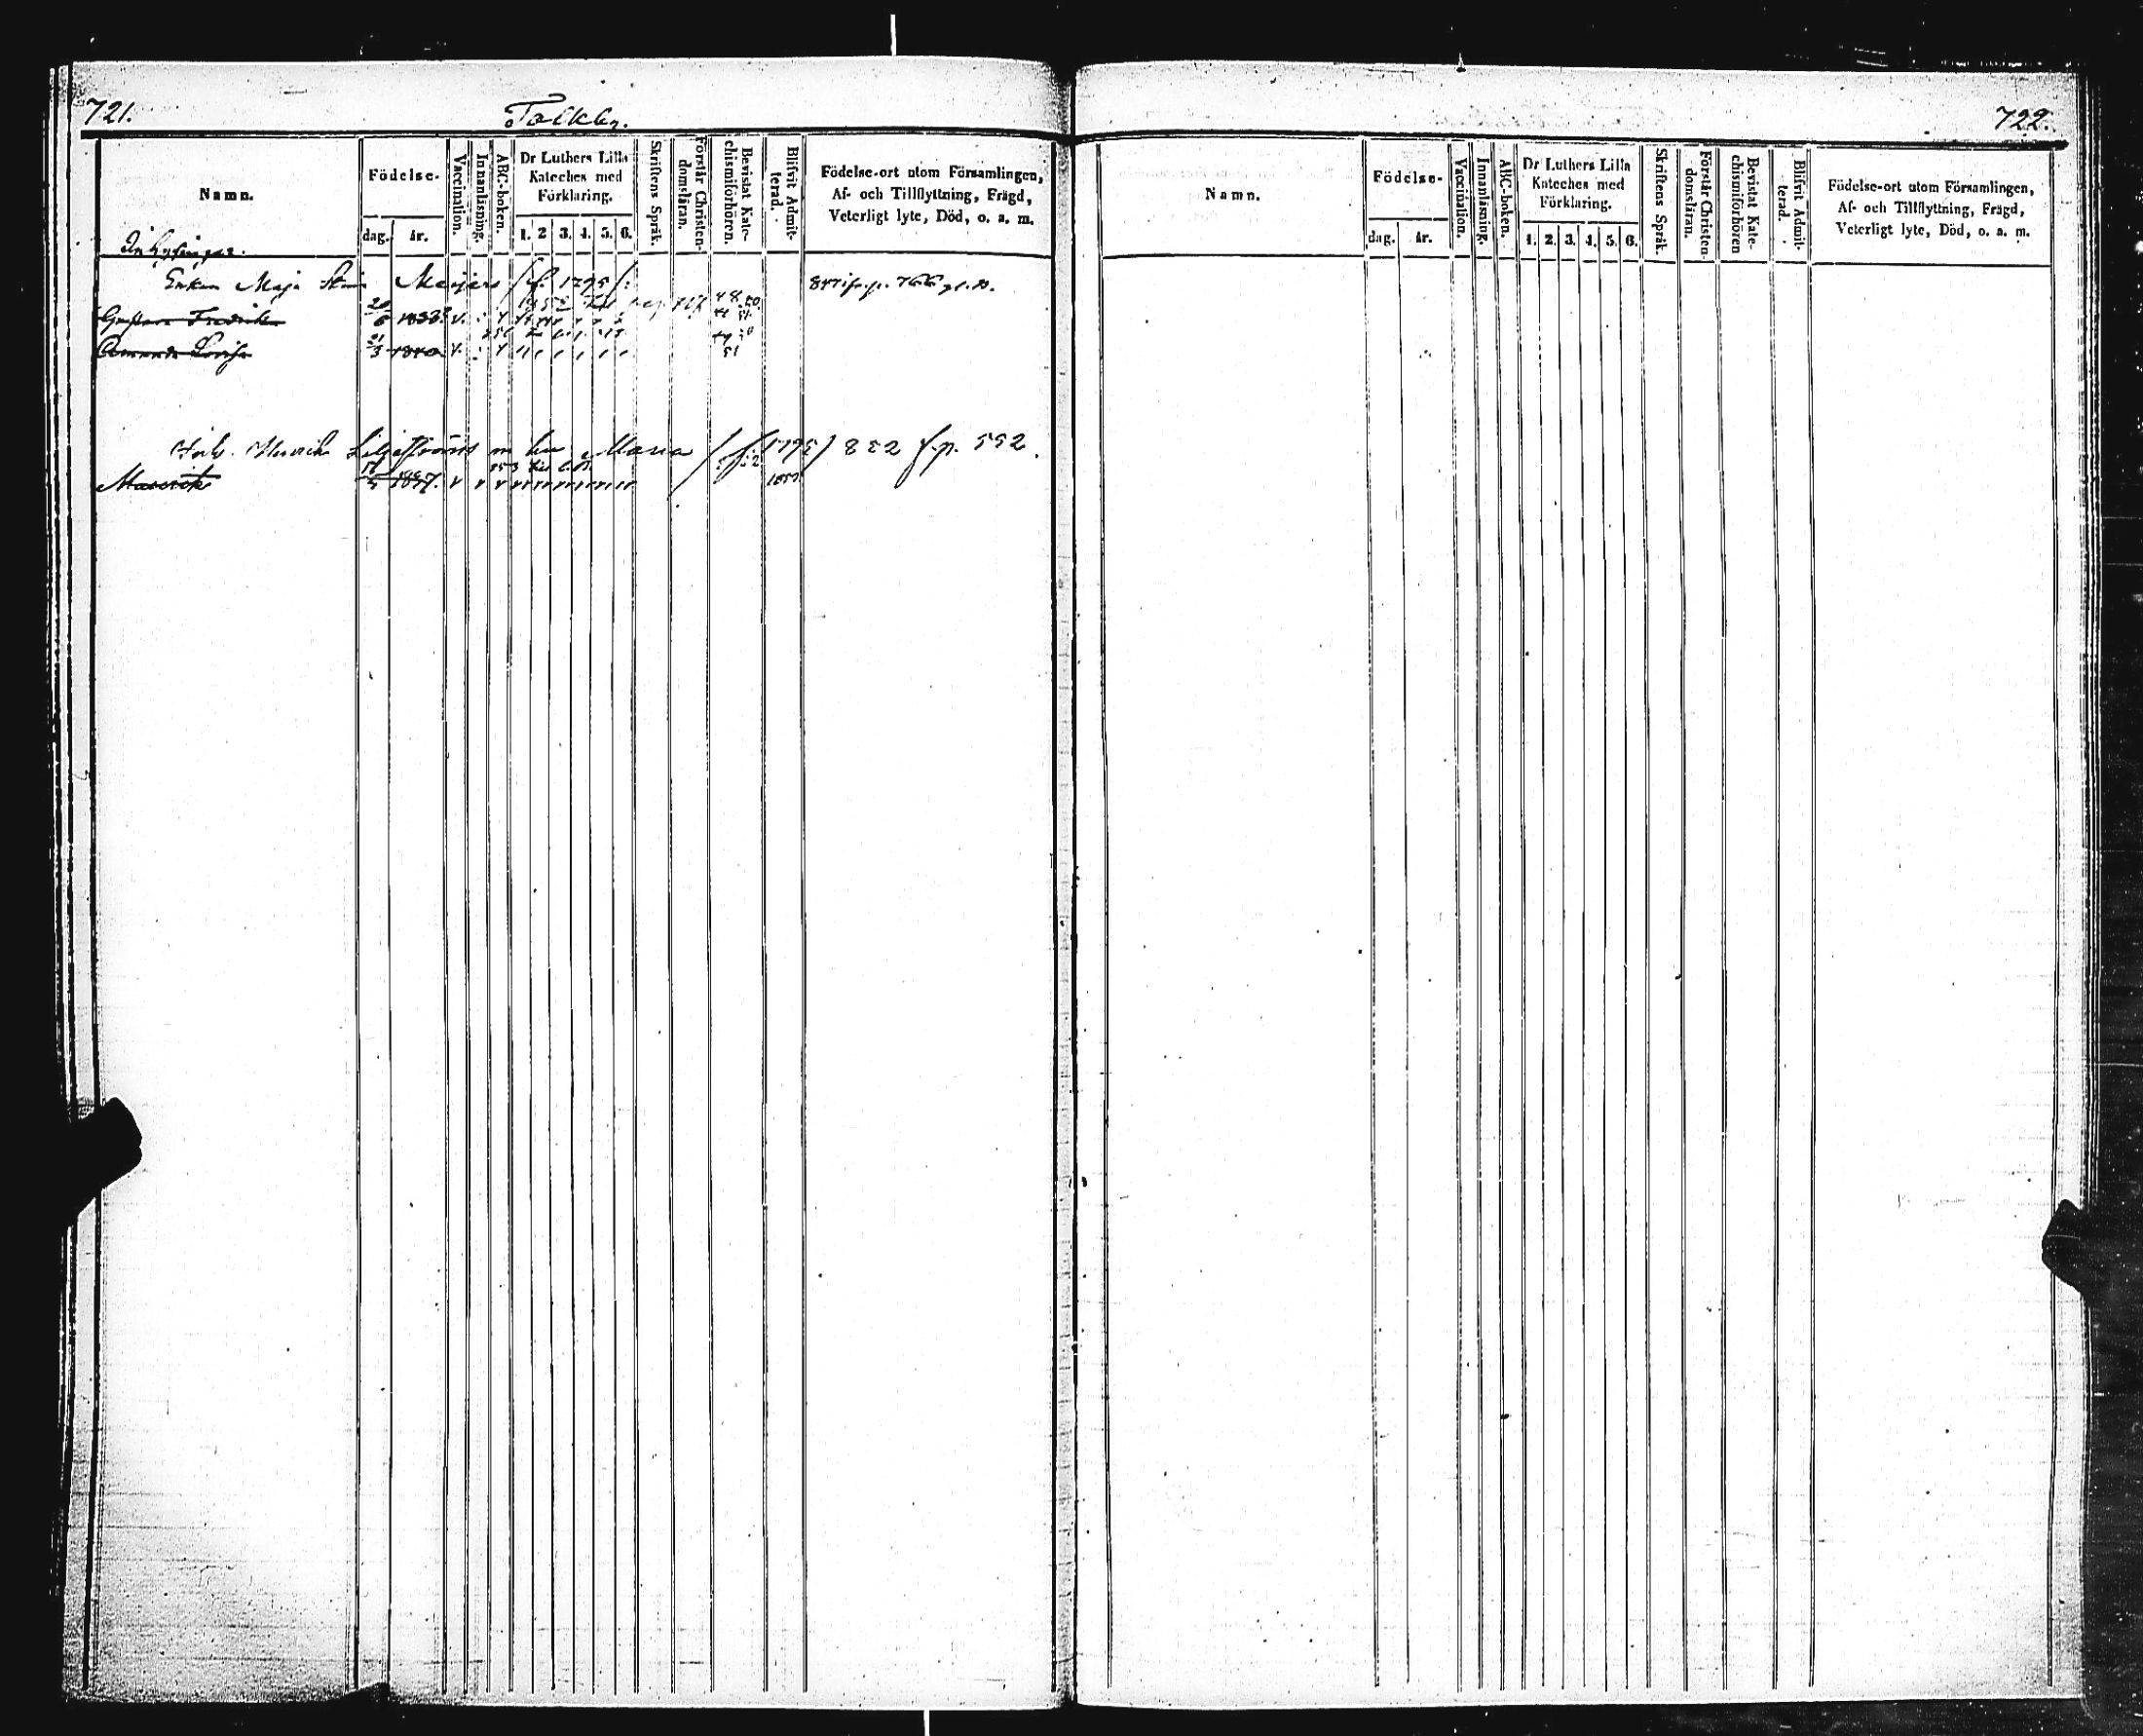 721.
Tolkby.
Namn.
Födelse.
dag.
år.
Vaccination.
Innanläsning.
ABC-boken.
Dr Luthers Lilla
Kateches med
Förklaring.
1. 2 3. 4. 5. 6.
Skriftens Språk.
Förstår Christen-
domsläran.
Bevistat Kate-
chismiförhören.
Blifvit Admit-
terad.
Födelse-ort utom Församlingen,
Af- och Tillflyttning, Frägd,
Veterligt lyte, Död, o. a. m.
Inhysingar.
Enkan Maja Meijers (f. 1795)
Gustava Fredrika 20/6 1838
Amanda Lovisa 21/3 1840
51
Henrik Liljeströms m hu Maria (f. 1795) 852 f.p. 552.
1847.
722.
Namn.
Födelse-
dag.
år.
Vaccination.
Innanläsning.
ABC-boken.
Dr Luthers Lilla
Kateches med
Förklaring.
1. 2. 3. 4. 5. 6.
Skriftens Språk.
Förstår Christen-
domsläran.
Bevistat Kate-
chismiförhören
Blifvit Admit-
terad.
Födelse-ort utom Församlingen,
Af- och Tillflyttning, Frägd,
Veterligt lyte, Död, o. a. m.